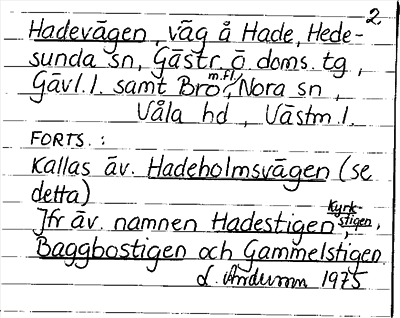 2.
Hadevägen, väg å Hade, Hede-
sunda sn, Gästr. ö. doms. tg,
Gävl. l. samt Bro m.fl., Nora sn,
Våla hd, Västm. l.
FORTS.:
Kallas äv. Hadeholmsvägen (se
detta)
Jfr äv. namnen Hadestigen, Kyrk-
stigen,
Baggbostigen och Gammelstigen
1975